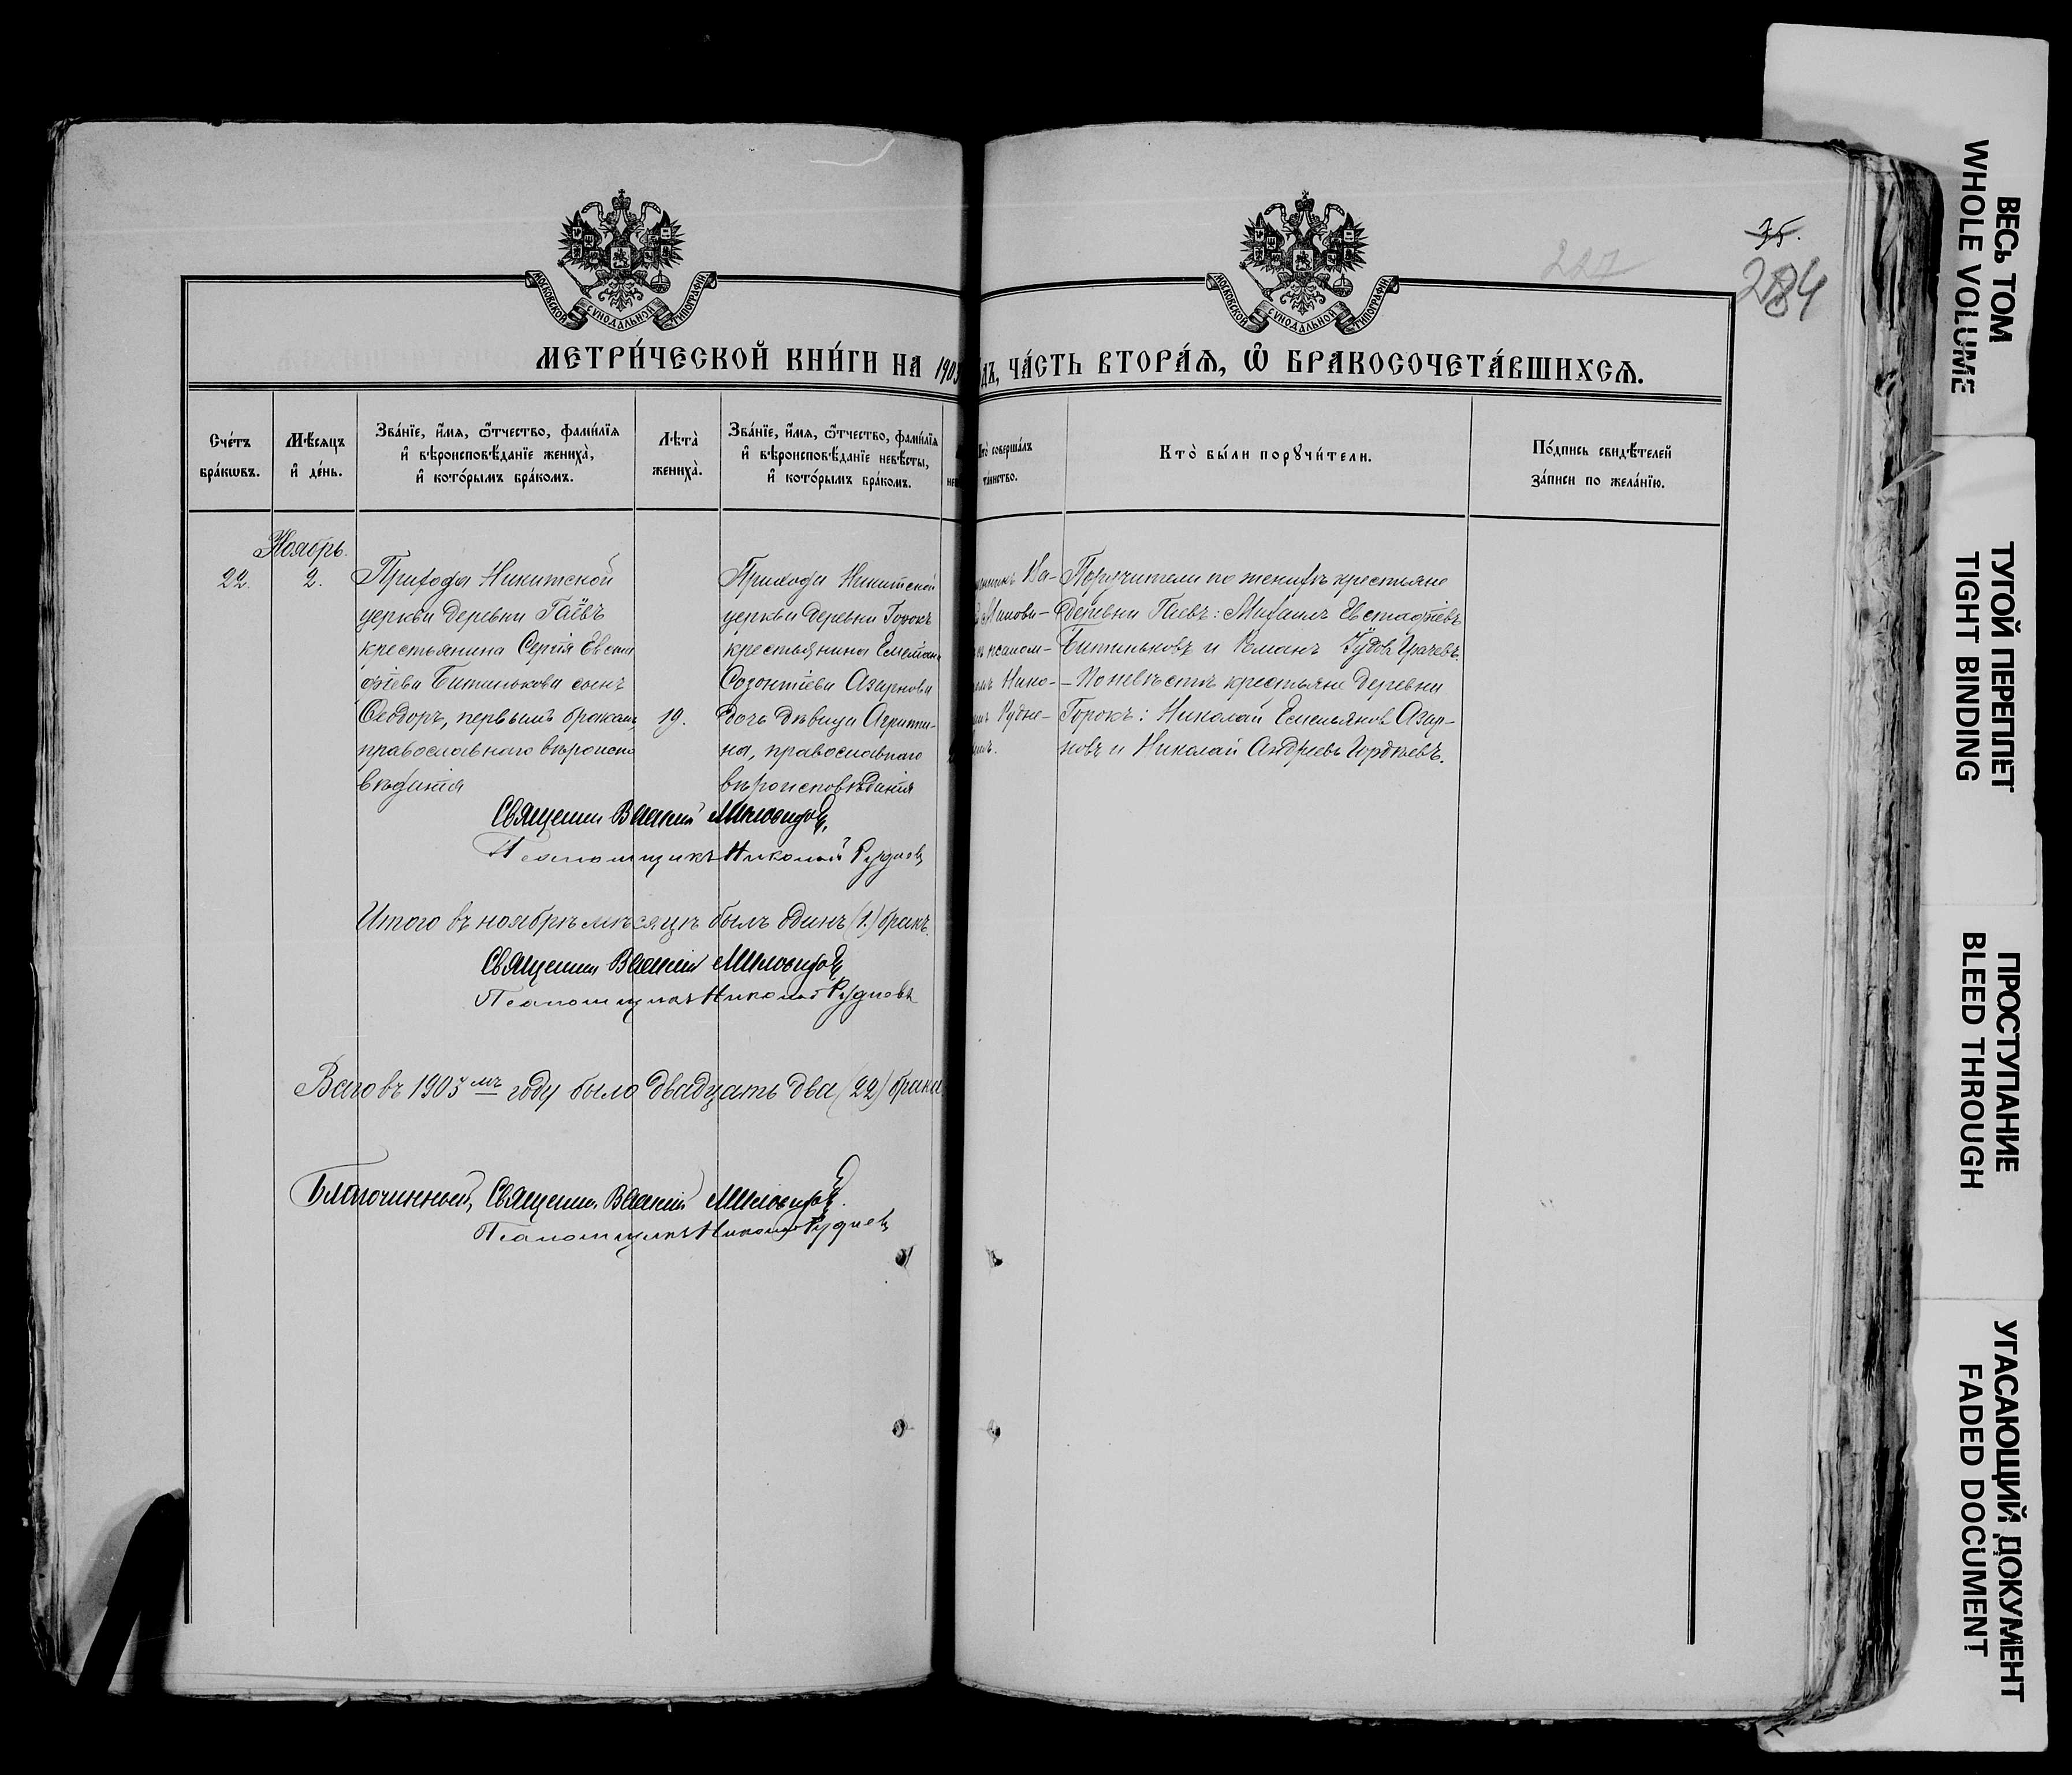 МОСКОВСКОЙ СѴНОДАЛЬНОЙ ТИПОГРАФІИ
МОСКОВСКОЙ СѴНОДАЛЬНОЙ ТИПОГРАФІИ
35.
227
284
МЕТРИ́ЧЕСКОЙ КНИ́ГИ НА 1905
ДЪ, ЧА́СТЬ ВТОРА́Ѧ, Ѽ БРАКОСОЧЕТА́ВШИХСѦ.
Сче́тъ бра́кѡвъ.
Мѣ́сѧцъ и҆ де́нь.
Зва́нїе, и҆́мѧ, ѻ҆́тчество, фами́лїѧ
и҆ вѣроисповѣ́данїе жениха̀,
и҆ кото́рымъ бра́комъ.
Лѣта̀ жениха̀.
Зва́нїе, и҆́мѧ, ѻ҆́тчество, фами́лїѧ
и҆ вѣроисповѣ́данїе невѣ́сты,
и҆ кото́рымъ бра́комъ.
Кто̀ соверша́лъ та́инство.
Кто̀ бы́ли порꙋчи́тели.
По́дпись свидѣ́телей
за́писи по жела́нїю.
Ноябрь.
22.
2.
Прихода Никитской
церкви деревни Гаевъ
крестьянина Сергія Евста
фіева Битюкова сынъ
Ѳеодоръ, первымъ бракомъ,
православнаго вѣроиспо
вѣданія
19.
Прихода Никитской
церкви деревни Горокъ
крестьянина Емельяна
Созонтіева Азарнова
дочь дѣвица Агрипи-
на, православнаго
вѣроисповѣданія
Ва-
Милови-
псалом-
Нико-
Рудне-
Поручители по женихѣ крестьяне
деревни Гаевъ: Михаилъ Евстафіевъ
и Романъ Грачевъ.
- По невѣстѣ крестьяне деревни
Горокъ: Николай Емельяновъ Азар-
новъ и Николай Андреевъ Гордѣевъ.
Священн. Василій Миловидовъ,
Псаломщикъ Николай Рудневъ
Итого въ ноябрѣ мѣсяцѣ былъ одинъ (1.) бракъ.
Священн. Василій Миловидовъ
Псаломщикъ Николай Рудневъ
Всего въ 1905 мъ году было двадцать два (22) брака.
Благочинный, Священн. Василій Миловидовъ.
Псаломщикъ Николай Рудневъ
ВЕСЬ ТОМ
WHOLE VOLUME
ТУГОЙ ПЕРЕПЛЕТ
TIGHT BINDING
ПРОСТУПАНИЕ
BLEED THROUGH
УГАСАЮЩИЙ ДОКУМЕНТ
FADED DOCUMENT